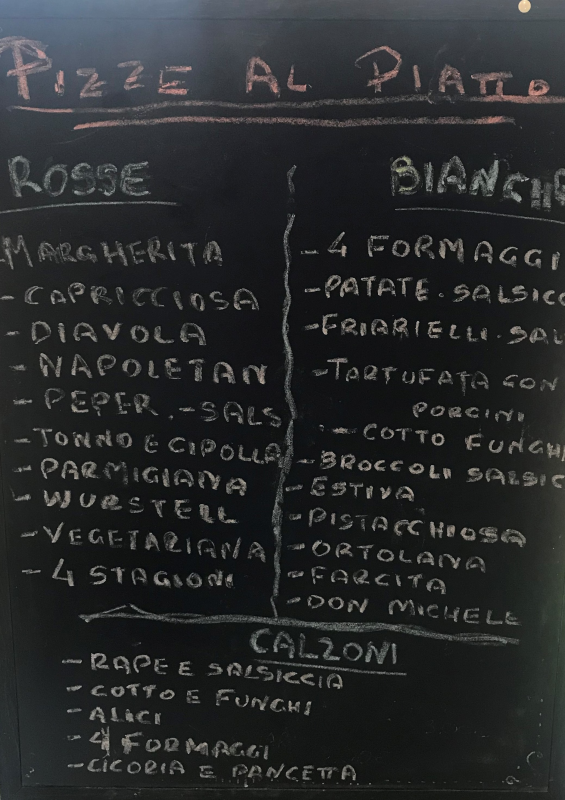 PIZZE AL PIATTO
ROSSE
- MARGHERITA
- CAPRICCIOSA
- DIAVOLA
- NAPOLETAN
- PEPER.-SALS
- TONNO E CIPOLLA
- PARMIGIANA
- WURSTELL
- VEGETARIANA
- 4 STAGIONI
BIANCHE
- 4 FORMAGGI
- PATATE.SALSICC
- FRIARIELLI.SAL
- TARTUFATA CON
PORCINI
- COTTO FUNGHI
- BROCCOLI SALSIC
- ESTIVA
- PISTACCHIOSA
- ORTOLANA
- FARCITA
- DON MICHELE
CALZONI
- RAPE E SALSICCIA
- COTTO E FUNGHI
- ALICI
- 4 FORMAGGI
- CICORIA E PANCETTA